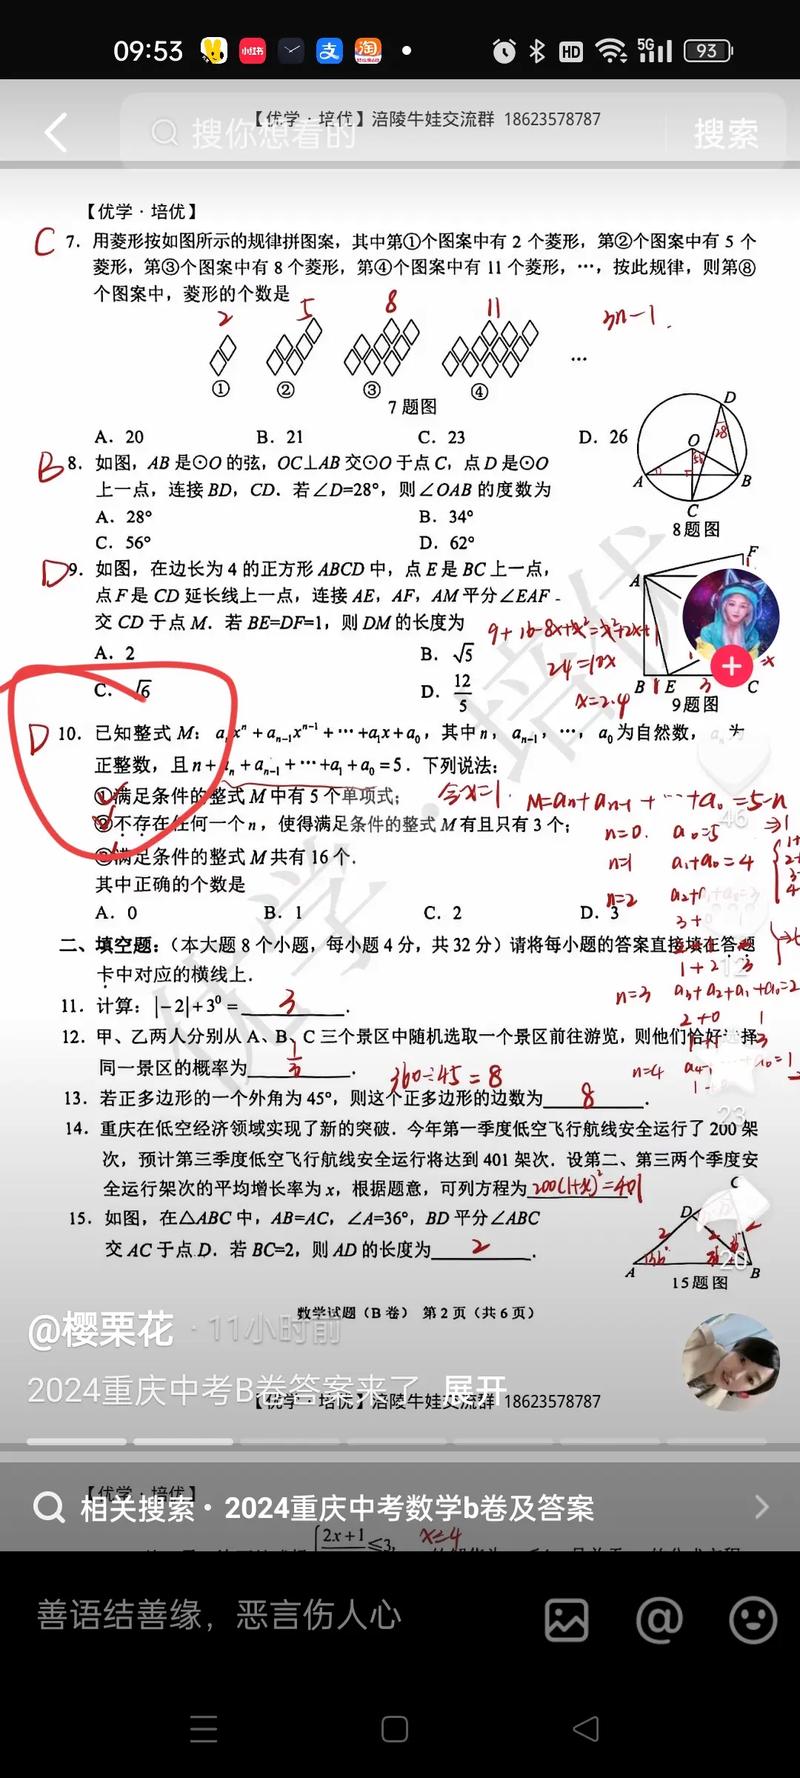 09:53
小红书
支
淘
HD
5G
93
【优学·培优】涪陵牛娃交流群 18623578787
搜你想看的
搜索
【优学·培优】
C 7. 用菱形按如图所示的规律拼图案，其中第①个图案中有 2 个菱形，第②个图案中有 5 个
菱形，第③个图案中有 8 个菱形，第④个图案中有 11 个菱形，…，按此规律，则第⑧
个图案中，菱形的个数是
2 5 8 11 3n-1.
① ② ③ ④ …
7 题图
A. 20 B. 21 C. 23 D. 26
B 8. 如图，AB 是⊙O 的弦，OC⊥AB 交⊙O 于点 C，点 D 是⊙O
上一点，连接 BD，CD．若∠D=28°，则∠OAB 的度数为
A. 28° B. 34°
C. 56° D. 62°
D
28
O
56
A B
C
8题图
D 9. 如图，在边长为 4 的正方形 ABCD 中，点 E 是 BC 上一点，
点 F 是 CD 延长线上一点，连接 AE，AF，AM 平分∠EAF
交 CD 于点 M．若 BE=DF=1，则 DM 的长度为
A. 2 B. √5
C. √6 D. 12/5
9+16-8x+x²=x²+2x+1
24=10x
x=2.4
F
1
A
B 1 E 3 C
9题图
D 10. 已知整式 M：aₙxⁿ+aₙ₋₁xⁿ⁻¹+…+a₁x+a₀，其中 n，aₙ₋₁，…，a₀ 为自然数，aₙ 为
正整数，且 n+aₙ+aₙ₋₁+…+a₁+a₀=5．下列说法：
①满足条件的整式 M 中有 5 个单项式；
②不存在任何一个 n，使得满足条件的整式 M 有且只有 3 个；
③满足条件的整式 M 共有 16 个．
其中正确的个数是
A. 0 B. 1 C. 2 D. 3
令x=1. M=aₙ+aₙ₋₁+…+a₀=5-n
n=0. a₀=5 ⇒1
n=1 a₁+a₀=4
n=2
3+0
1+2
n=3 a₃+a₂+a₁+a₀=2
2+0 1
n=4
46
12
23
20
二、填空题：（本大题 8 个小题，每小题 4 分，共 32 分）请将每小题的答案直接填在答题
卡中对应的横线上．
11. 计算：|-2|+3⁰=3．
12. 甲、乙两人分别从 A、B、C 三个景区中随机选取一个景区前往游览，则他们恰好选择
同一景区的概率为1/3．
360÷45=8
13. 若正多边形的一个外角为 45°，则这个正多边形的边数为8．
14. 重庆在低空经济领域实现了新的突破．今年第一季度低空飞行航线安全运行了 200 架
次，预计第三季度低空飞行航线安全运行将达到 401 架次．设第二、第三两个季度安
全运行架次的平均增长率为 x，根据题意，可列方程为200(1+x)²=401
15. 如图，在△ABC 中，AB=AC，∠A=36°，BD 平分∠ABC
交 AC 于点 D．若 BC=2，则 AD 的长度为2．
C
D
2 2
36°
A B
15题图
数学试题（B 卷） 第 2 页（共 6 页）
@樱栗花 · 11小时前
2024重庆中考B卷答案来了 展开
【优学·培优】涪陵牛娃交流群 18623578787
【优学·培优】
相关搜索 · 2024重庆中考数学b卷及答案
2x+1
≤3,
x≤4
善语结善缘，恶言伤人心
优学·培优